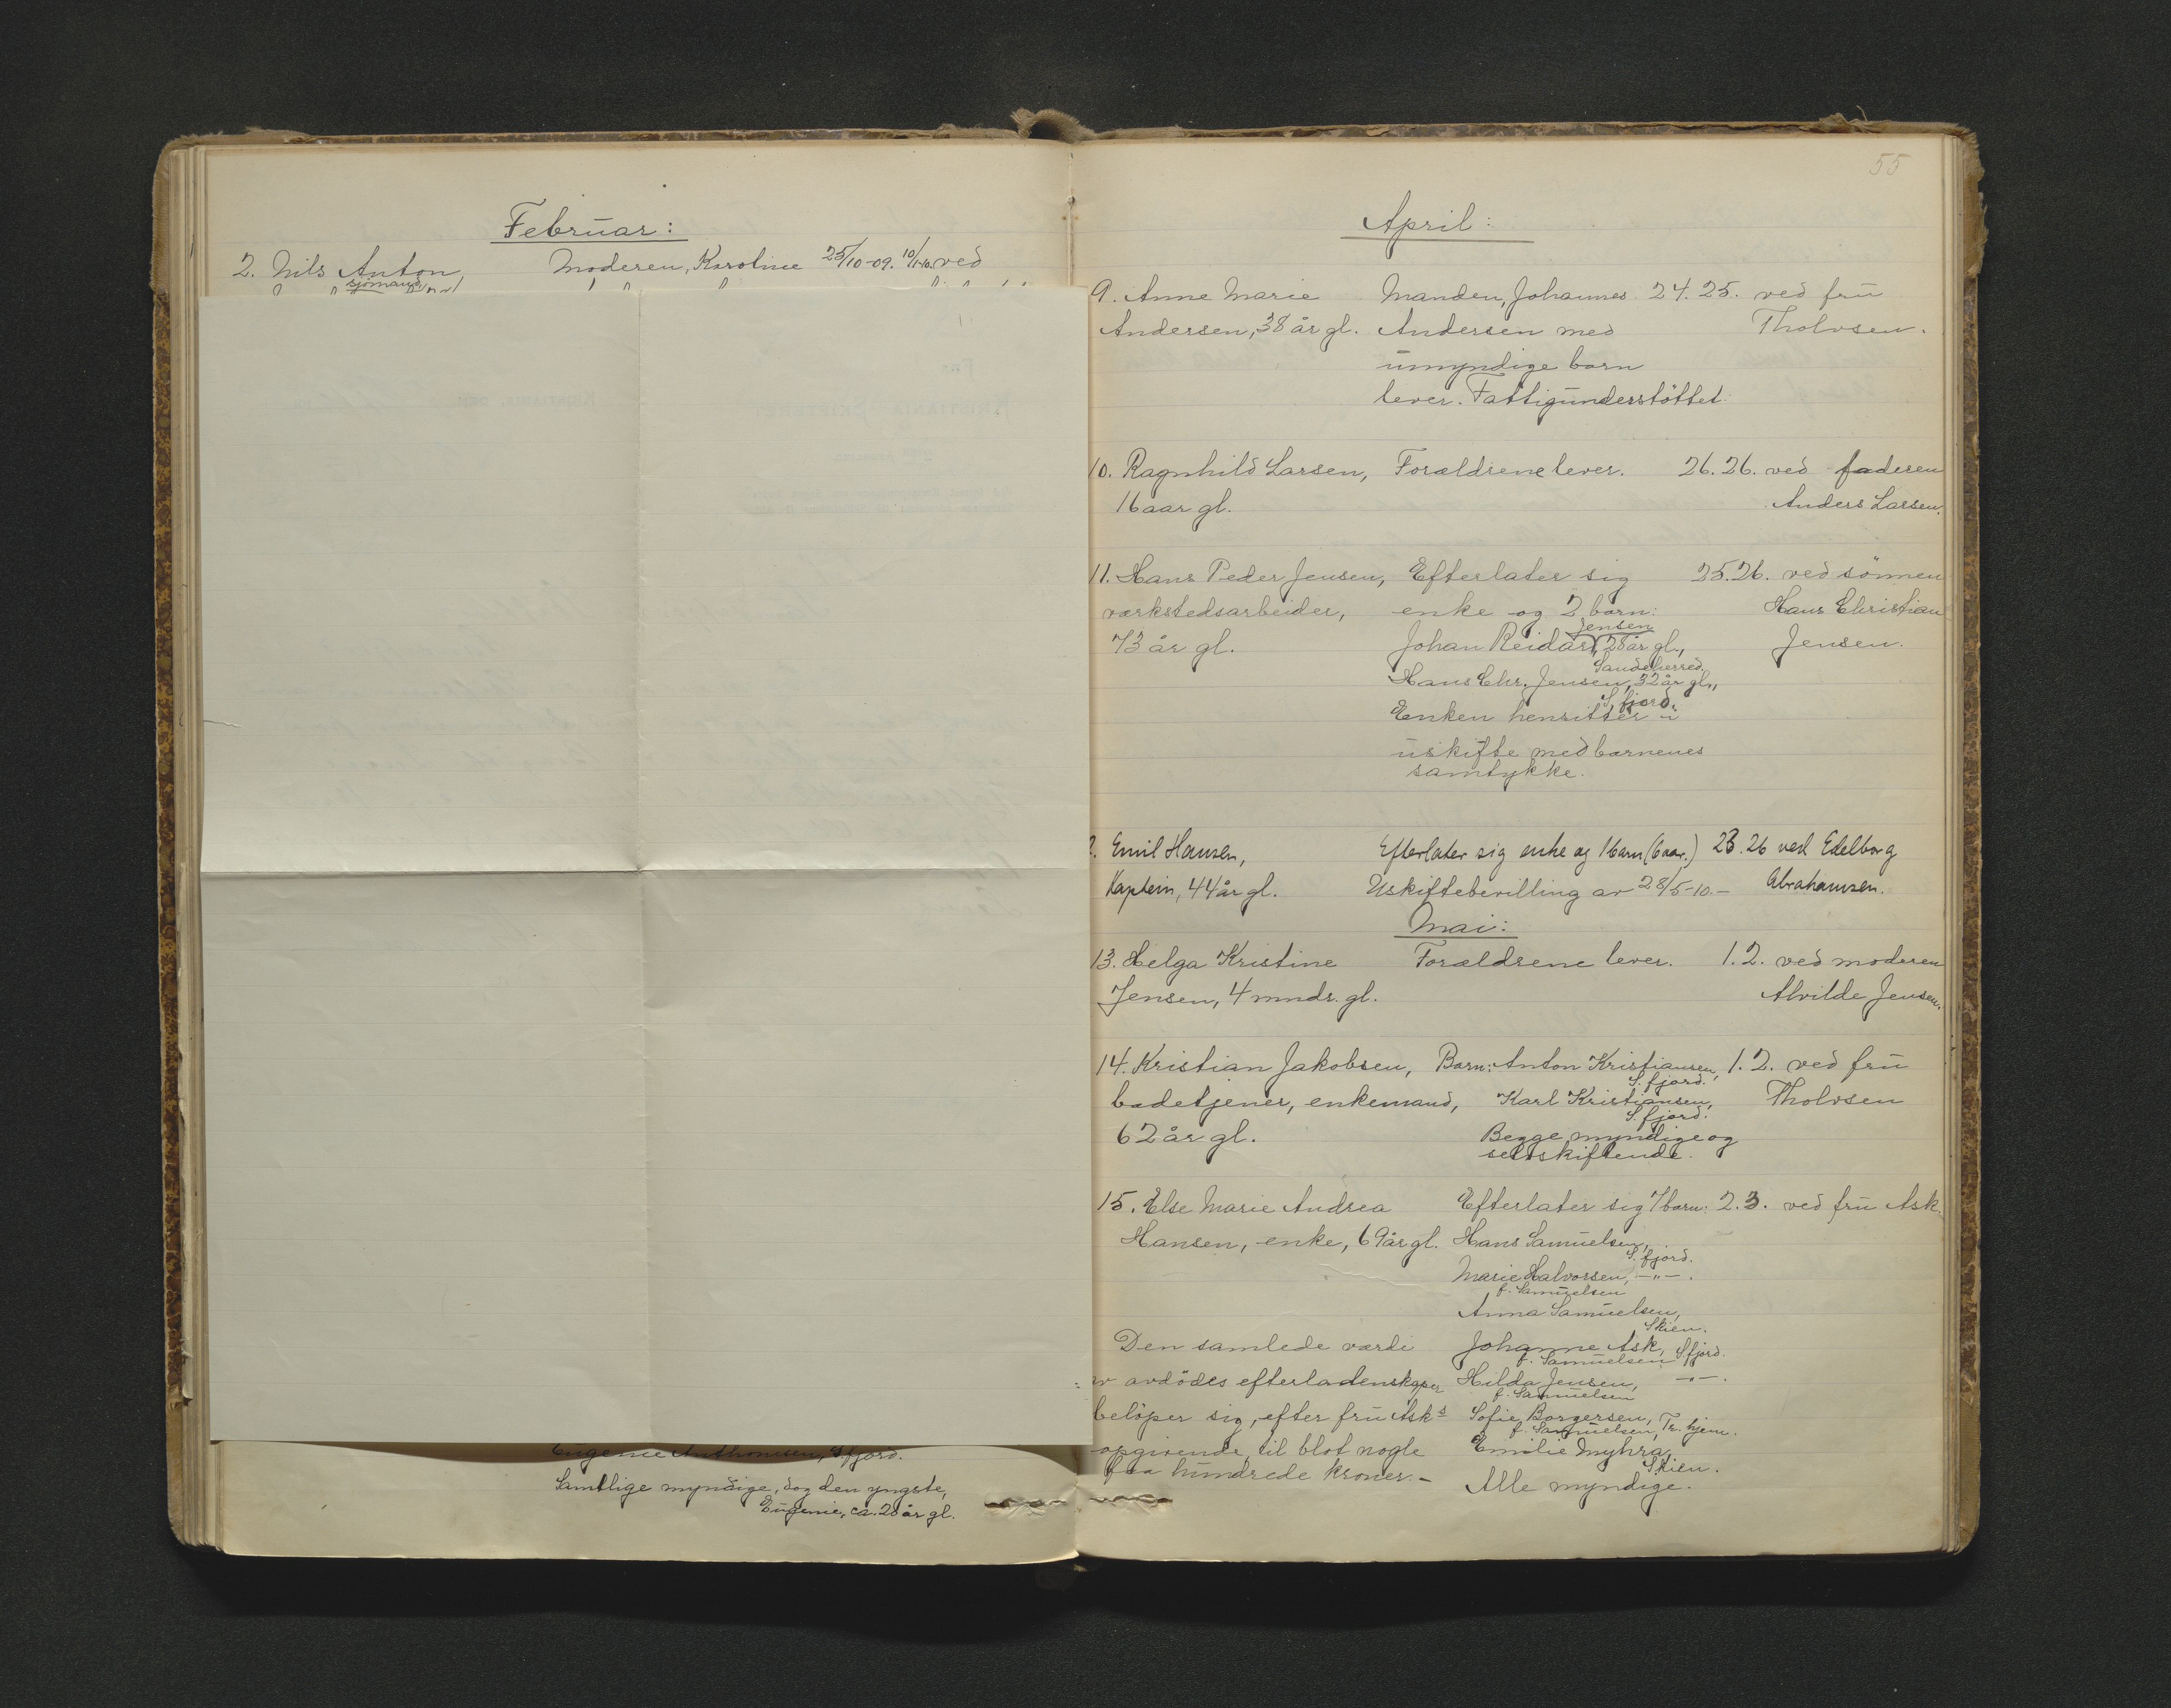 Februar:
2. Nils Anton, Moderen, Karoline 25/10-09. 10/1-10. ved
sjömand
Eugenie Anthonisen, S.fjord.
Samtlige myndige, dog den yngste,
Eugenie, ca. 28 år gl.
55
April:
9. Anne Marie Manden, Johannes 24. 25. ved frü
Andersen, 38 år gl. Andersen med Tholvsen.
umyndige barn
lever. Fattigunderstöttet.
10. Ragnhild Larsen, Forældrene lever. 26. 26. ved faderen
16 aar gl. Anders Larsen.
11. Hans Peder Jensen, Efterlater sig 25. 26. ved sönnen
værkstedsarbeider, enke og 2 barn: Hans Christian
Jensen
73 år gl. Johan Reidar, 28 år gl., Jensen.
Sandeherred.
Hans Chr. Jensen, 32 år gl.,
S.fjord.
Enken hensitter i
uskifte med barnenes
samtykke.
2. Emil Hansen, Efterlater sig enke og 1 barn (6 aar.) 23. 26 ved Edelborg
Kaptein, 44 år gl. Uskiftebevilling av 28/5-10.- Abrahamsen.
Mai:
13. Helga Kristine Forældrene lever. 1. 2. ved moderen
Jensen, 4 mndr. gl. Alvilde Jensen.
14. Kristian Jakobsen, Barn: Anton Kristiansen, 1. 2. ved frü
S.fjord.
badetjener, enkemand, Karl Kristiansen, Tholvsen
S.fjord.
62 år gl. Begge myndige og
selvskiftende.
15. Else Marie Andrea Efterlater sig 7 barn: 2. 3. ved frü Ask.
Hansen, enke, 69 år gl. Hans Samuelsen,
S.fjord.
Marie Halvorsen, -"-.
f. Samuelsen
Anna Samuelsen,
Skien.
Den samlede værdi Johanne Ask, S.fjord.
f. Samuelsen
av avdödes efterladenskaper Hilda Jensen, -"-.
f. Samuelsen
belöper sig, efter frü Asks Sofie Borgersen, Tr.hjem.
f. Samuelsen,
opgivende, til blot nogle Emilie Myhra,
Skien.
faa hundrede kroner.- Alle myndige.